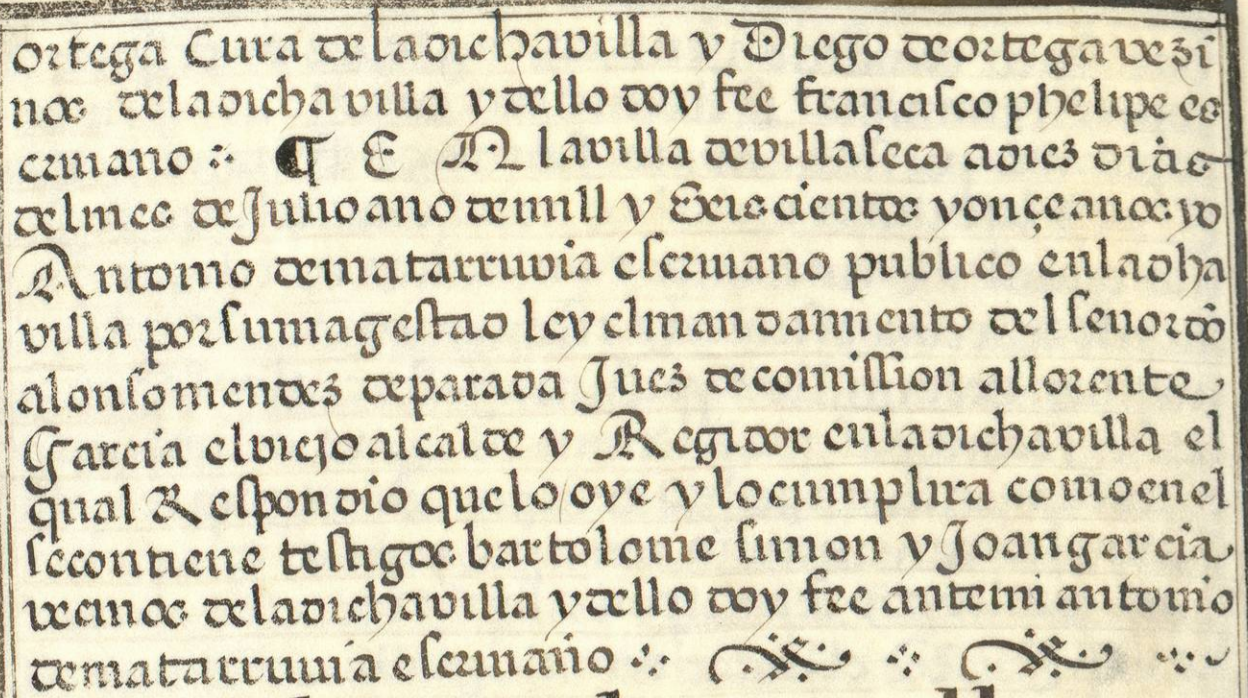 ortega Cura de la dicha villa y Diego de ortega vezi
nos de la dicha villa y dello doy fee francisco phelipe es
criuano ¶ E N la villa de villaseca a dies dias
del mes de Julio ano de mill y Seiscientos y onçe anos yo
Antonio de matarruvia escriuano publico en la dha
villa por su magestad ley el mandamiento del senor do
alonso mendez de parada Juez de comission a llorente
Garcia el viejo alcalde y Regidor en la dicha villa el
qual Respondio que lo oye y lo cumplira como en el
se contiene testigos bartolome simon y Joan garcia
vecinos de la dicha villa y dello doy fee ante mi antonio
de matarruuia escriuano